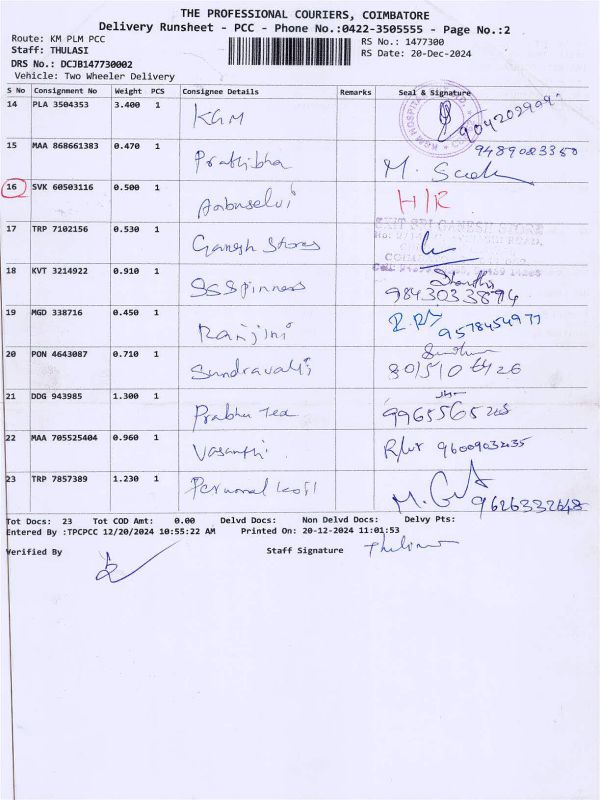 THE PROFESSIONAL COURIERS, COIMBATORE
Delivery Runsheet - PCC - Phone No.:0422-3505555 - Page No.:2
Route: KM PLM PCC
RS No.: 1477300
Staff: THULASI
RS Date: 20-Dec-2024
DRS No.: DCJB147730002
Vehicle: Two Wheeler Delivery
S No Consignment No Weight PCS Consignee Details Remarks Seal & Signature
14 PLA 3504353 3.400 1 KGM
15 MAA 868661383 0.470 1 Prathibha 9489083350
16 SVK 60503116 0.500 1 Anbuselvi H/R
17 TRP 7102156 0.530 1 Ganesh Stores
18 KVT 3214922 0.910 1 SS Spinners 9843033894
19 MGD 338716 0.450 1 Ranjini 9578454977
20 PON 4643087 0.710 1 Sundravalli
21 DDG 943985 1.300 1 Prabhu Tea
22 MAA 705525404 0.960 1 Vasanthi 9600903235
23 TRP 7857389 1.230 1 9626332648
Tot Docs: 23 Tot COD Amt: 0.00 Delvd Docs: Non Delvd Docs: Delvy Pts:
Entered By :TPCPCC 12/20/2024 10:55:22 AM Printed On: 20-12-2024 11:01:53
Verified By Staff Signature